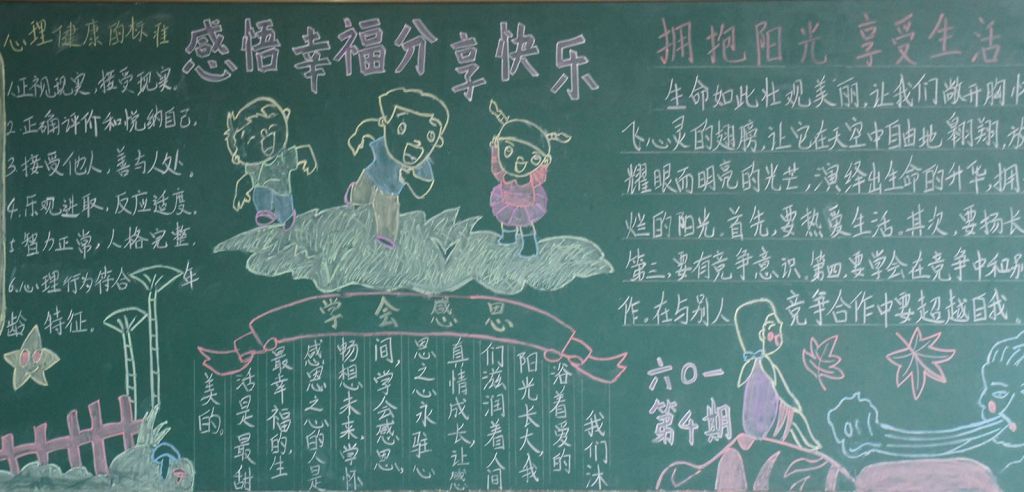 心理健康的标准
1.正视现实,接受现实。
2.正确评价和悦纳自己.
3.接受他人,善与人处.
4.乐观进取,反应适度.
5.智力正常,人格完整.
6.心理行为符合 年
龄 特征.
感悟幸福分享快乐
学会感恩
我们沐
浴着爱的
阳光长大我
们滋润着人间
真情成长,让感
恩之心永驻心
间,学会感恩,
畅想未来,常怀
感恩之心的人是
最幸福的,生
活是最甜
美的。
拥抱阳光 享受生活
生命如此壮观美丽,让我们敞开胸
飞心灵的翅膀,让它在天空中自由地翱翔,放
耀眼而明亮的光芒,演绎出生命的升华,拥
烂的阳光.首先,要热爱生活,其次,要扬长
第三,要有竞争意识,第四,要学会在竞争中和别
作,在与别人 竞争合作中要超越自我.
六0一
第4期